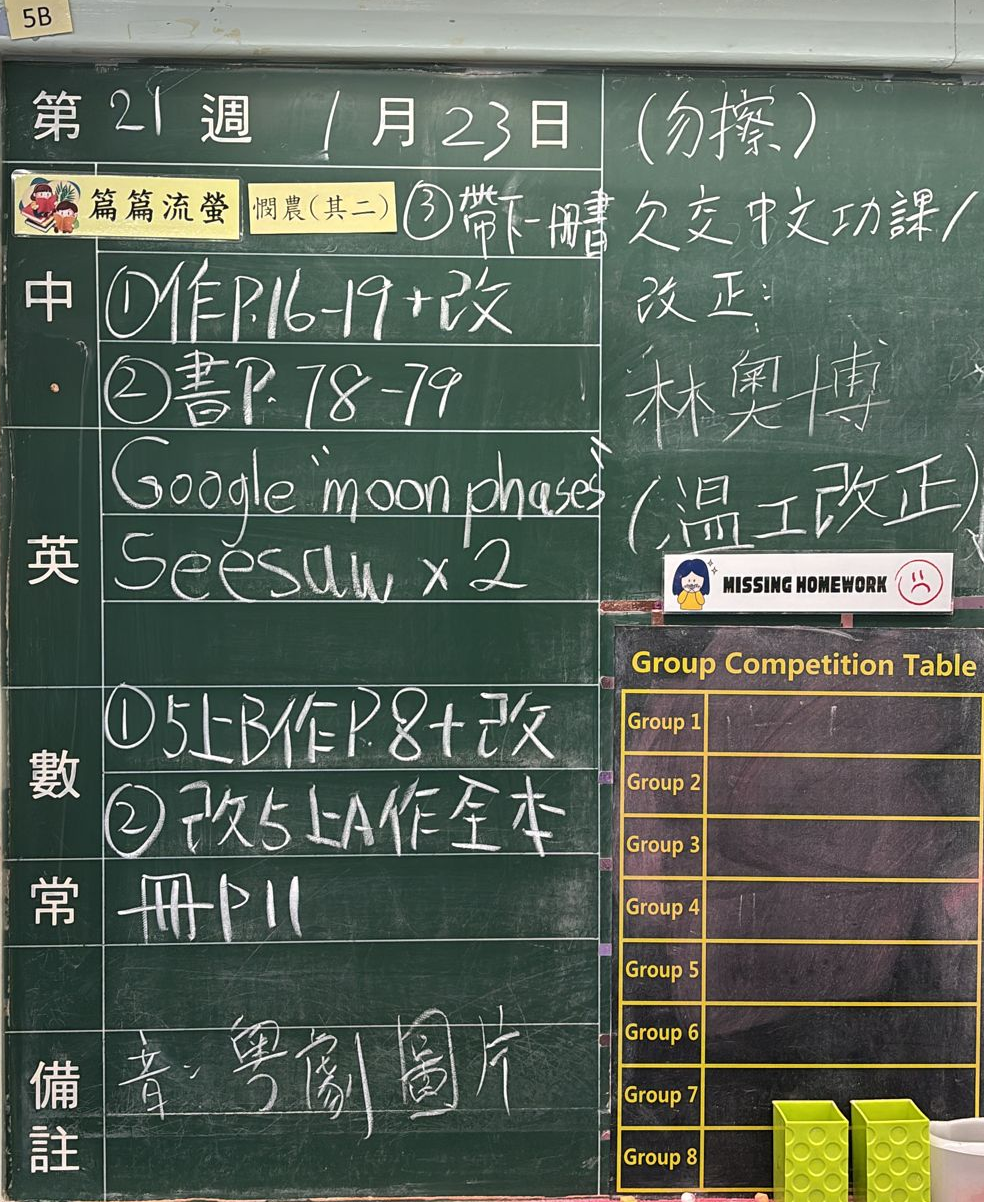 5B
第 21 週 1 月 23 日
篇篇流螢 憫農(其二) ③帶下一冊書
中
①作P.16-19+改
②書P.78-79
英
Google "moon phases"
Seesaw x 2
數
①5上B作P.8+改
②改5上A作全本
常
冊P11
備註
音:粵劇圖片
(勿擦)
欠交中文功課/
改正:
林奧博
(溫工改正)
MISSING HOMEWORK
Group Competition Table
Group 1
Group 2
Group 3
Group 4
Group 5
Group 6
Group 7
Group 8